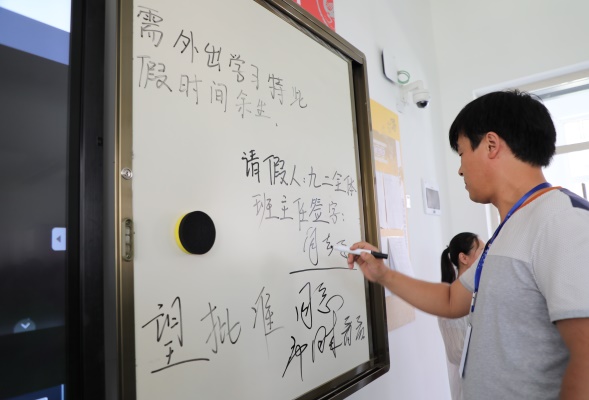 需外出学习特此
假时间余生.
请假人:九二全体
班主任签字:
同意
望批准
同意